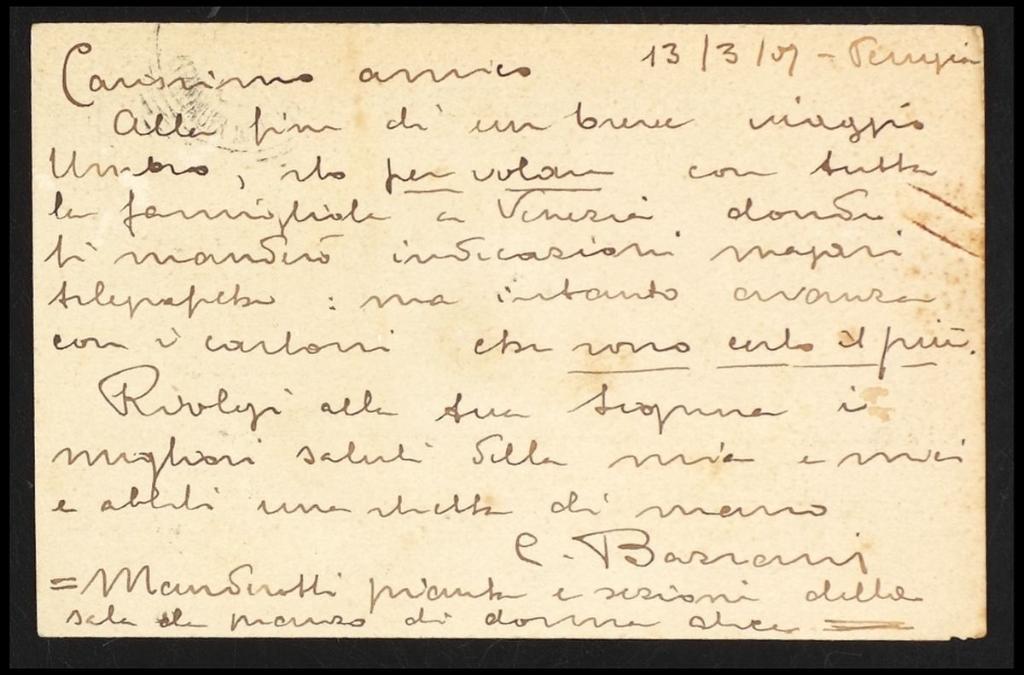 13/3/07 - Perugia
Carissimo amico
Alla fine di un breve viaggio
Umbro, sto per volare con tutta
la famigliola a Venezia donde
ti manderò indicazioni magari
telegrafiche: ma intanto avanza
con i cartoni che sono certo il più.
Rivolgi alla tua Signora i
migliori saluti della mia e miei
e abbiti una stretta di mano
C. Bazzani
= Manderotti pianta e sezioni della
sala da pranzo di donna Alice =